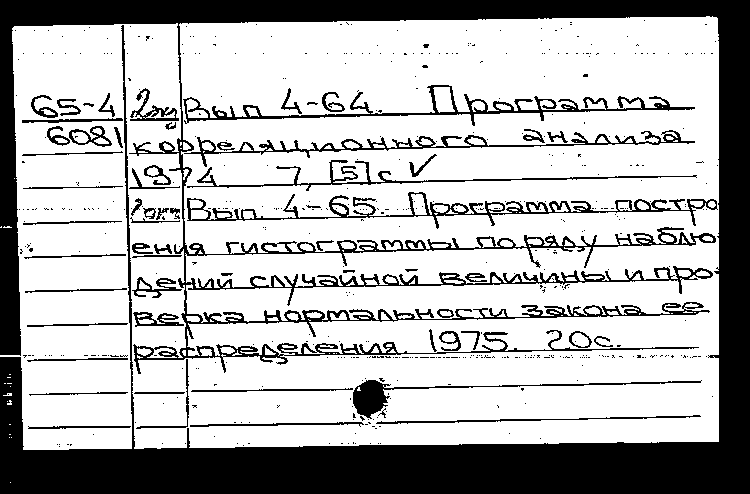 65-4 2экз Вып 4-64. Программа
6081 корреляционного анализа
1974 7, [5] с ✓
2экз Вып. 4-65. Программа постро-
ения гистограммы по ряду наблю-
дений случайной величины и про-
верка нормальности закона ее
распределения. 1975. 20с.